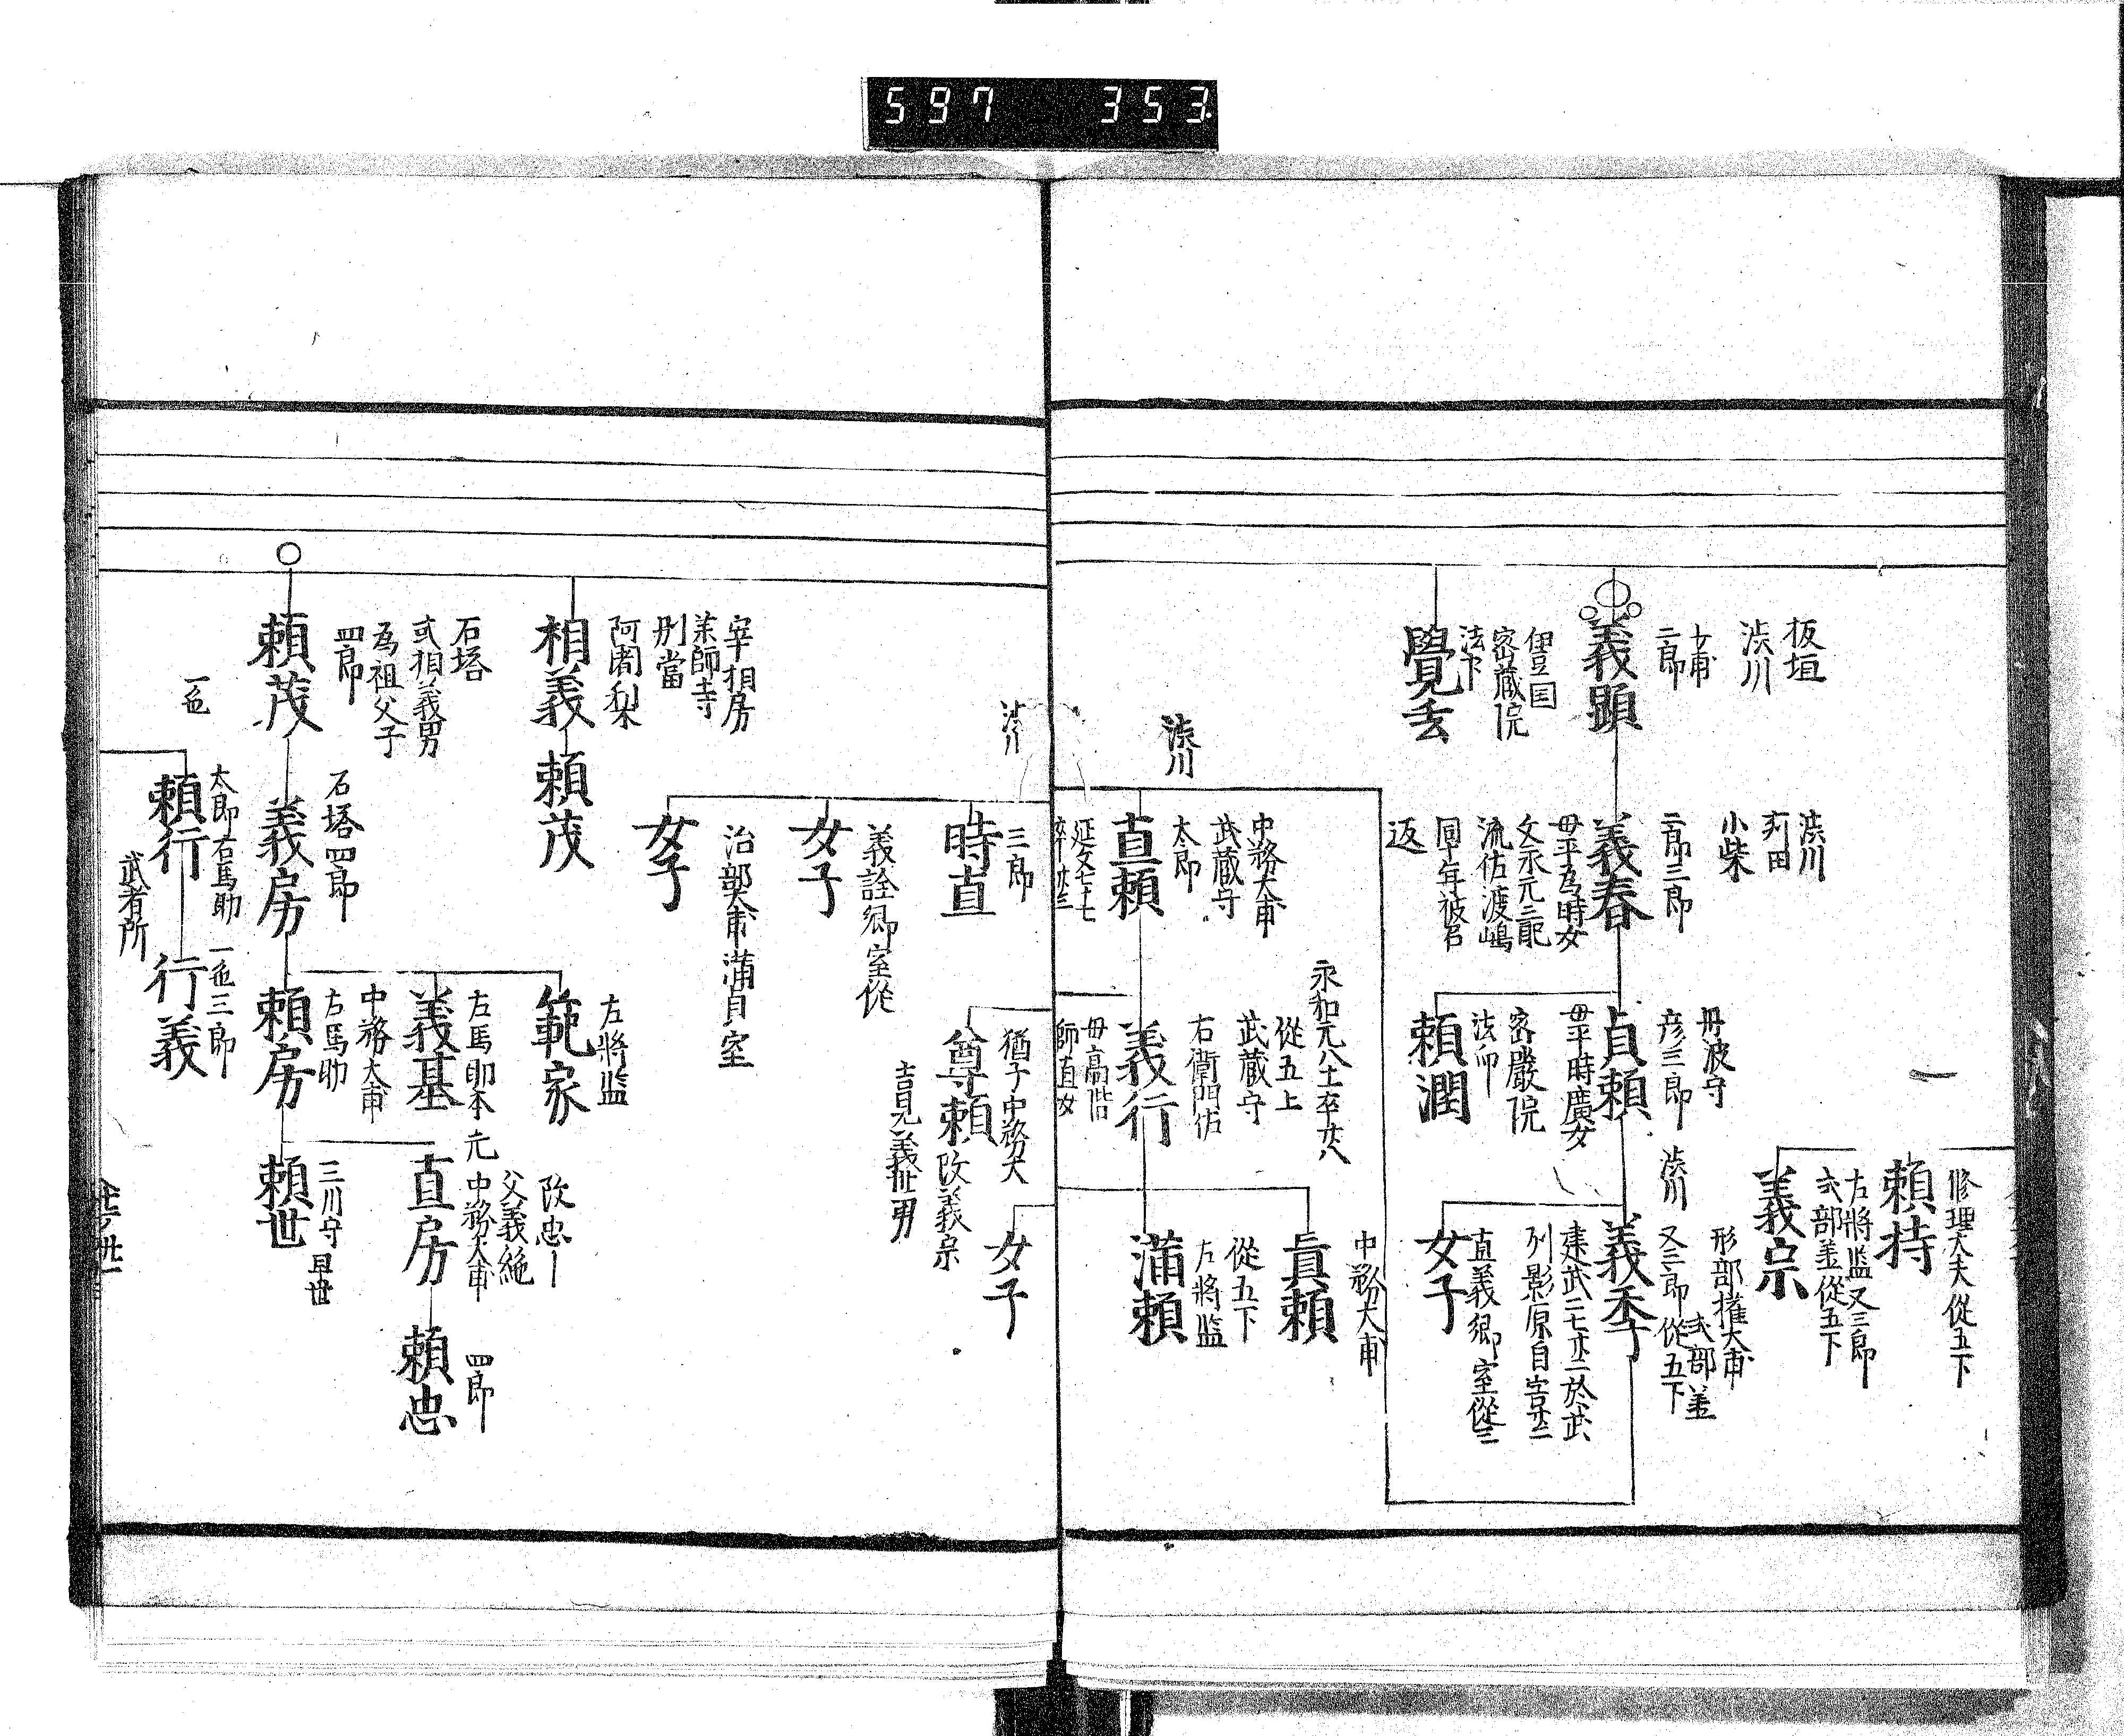 597 353
板垣
渋川
二郎
義顕
伊豆国
密蔵院
法下
覺玄
渋川
苅田
小柴
二郎三郎
義春
母平為時女
文永元三配
流佐渡嶋
同年被召
返
丹波守
彦三郎
貞頼
母平時廣女
密嚴院
法印
頼潤
修理大夫從五下
頼持
左將监又三郎
式部丞從五下
義宗
渋川
形部権大甫
式部丞
又三郎從五下
義季
建武二七廿二於武
列影原自害廿二
直義卿室從二
女子
渋川
中務大甫
武蔵守
太郎
直頼
延文元七
卒
永和元八十一卒廿八
從五上
武蔵守
右衛門佐
義行
母高階
師直女
中務大甫
眞頼
從五下
左將监
満頼
渋川
三郎
時直
義詮卿室從
女子
治部大甫満貞室
女子
猶子中務大
尊頼
改義宗
吉見義世男
女子
宰相房
薬師寺
別當
阿闍梨
相義
頼茂
石塔
或相義男
為祖父子
四郎
頼茂
石塔四郎
義房
左將监
範家
左馬助本
義基
中務大甫
右馬助
頼房
改忠
父義絶
元中務大甫
直房
四郎
頼忠
三川守
早世
頼世
一色
太郎右馬助
頼行
武者所
一色三郎
行義